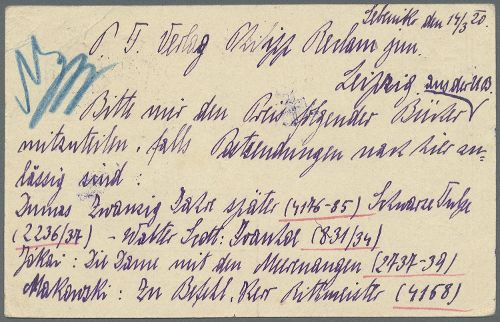 den 14/3 20.
P. T. Verlag Philipp Reclam jun.
Leipzig
Bitte mir den Preis folgender Bücher
mitzuteilen, falls Postsendungen nach hier zu-
lässig sind :
Dumas Zwanzig Jahre später (4176-85) Schwarze Tulpe
(2236/37) - Walter Scott: Ivanhoe (831/34)
Jókai : Die Dame mit den Meeraugen (2737-39)
Makowski : Zu Befehl, Herr Rittmeister (4168)